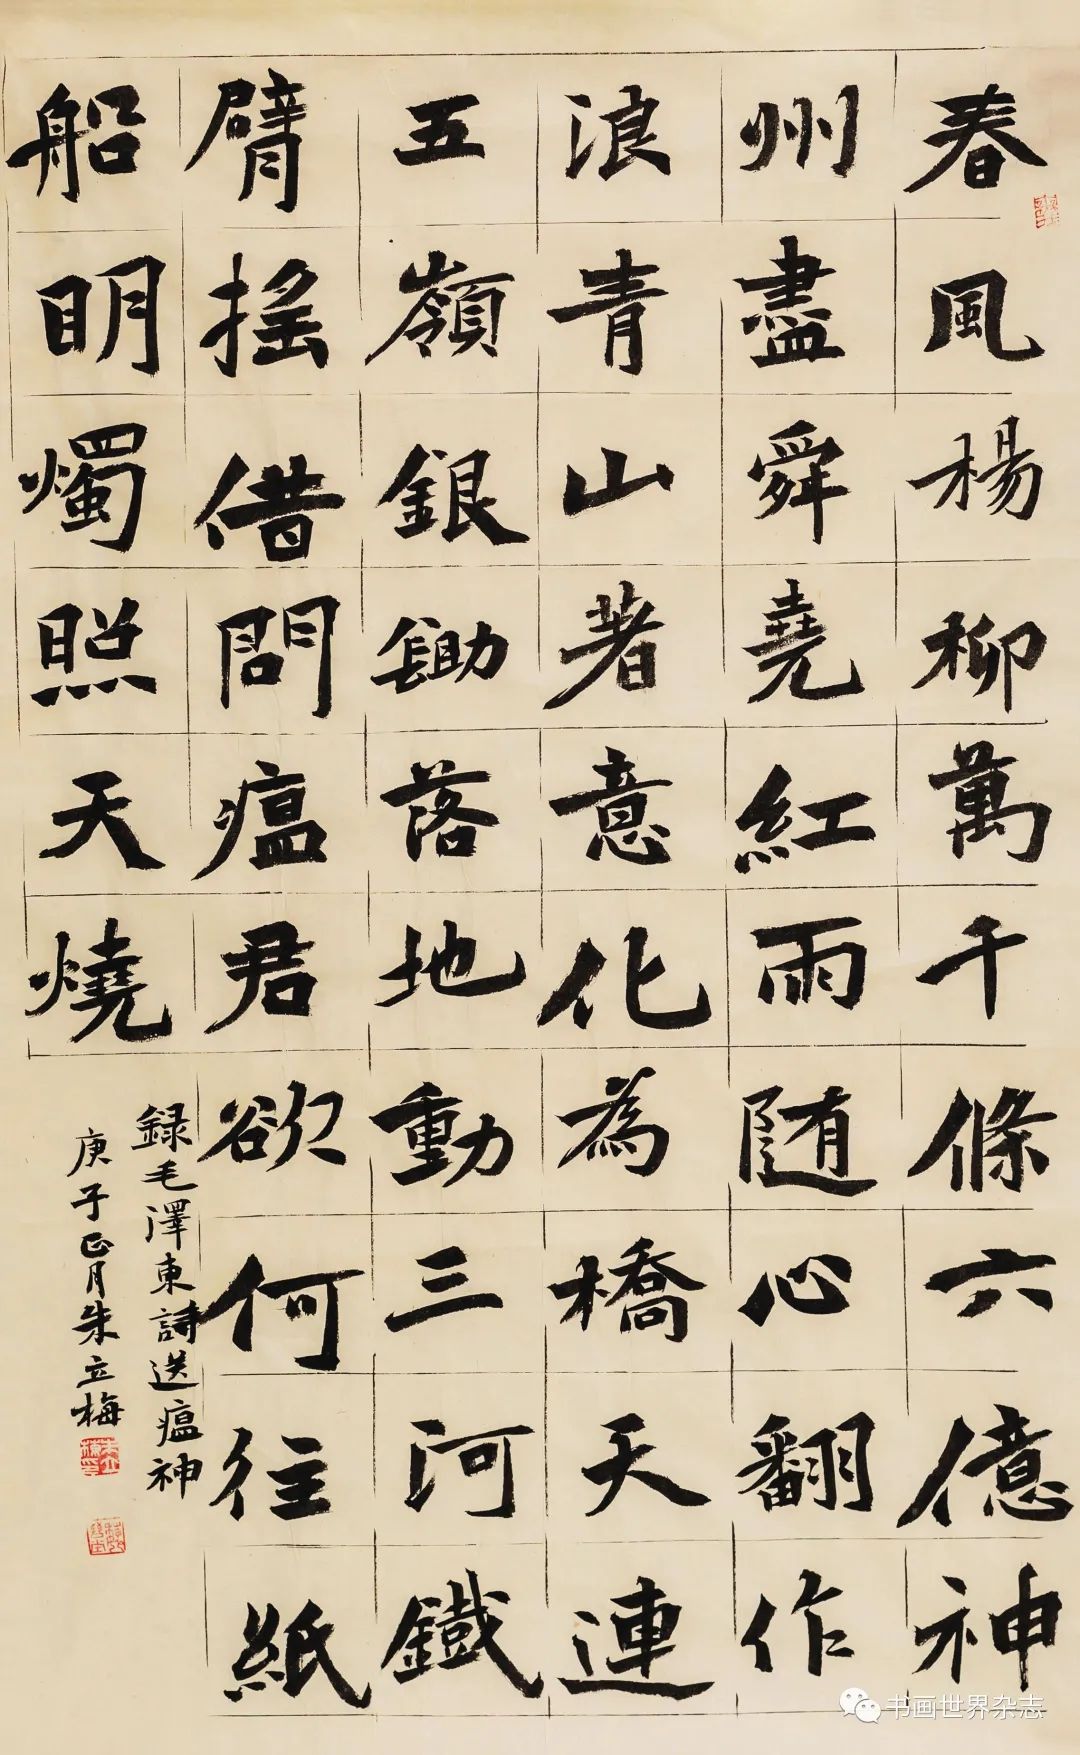 春風楊柳萬千條六億神
州盡舜堯紅雨随心翻作
浪青山著意化為橋天連
五嶺銀鋤落地動三河鐵
臂搖借問瘟君欲何往紙
船明燭照天燒
録毛澤東詩送瘟神
庚子正月朱立梅
书画世界杂志